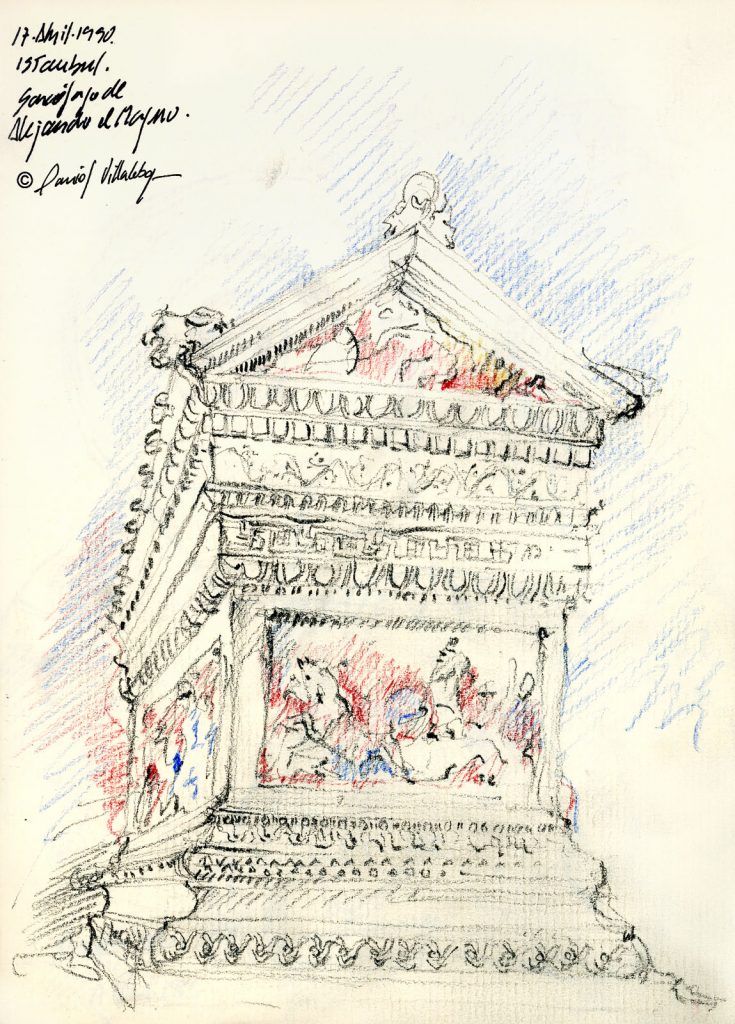 17·Abril·1990.
Istanbul.
Sarcófago de
Alejandro el Magno.
© David Villalobos